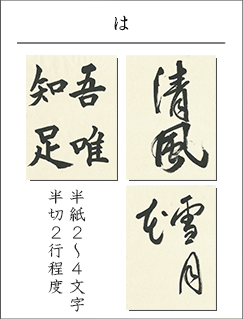 は
清風
吾唯
知足
雪月
花
半紙２～４文字
半切２行程度